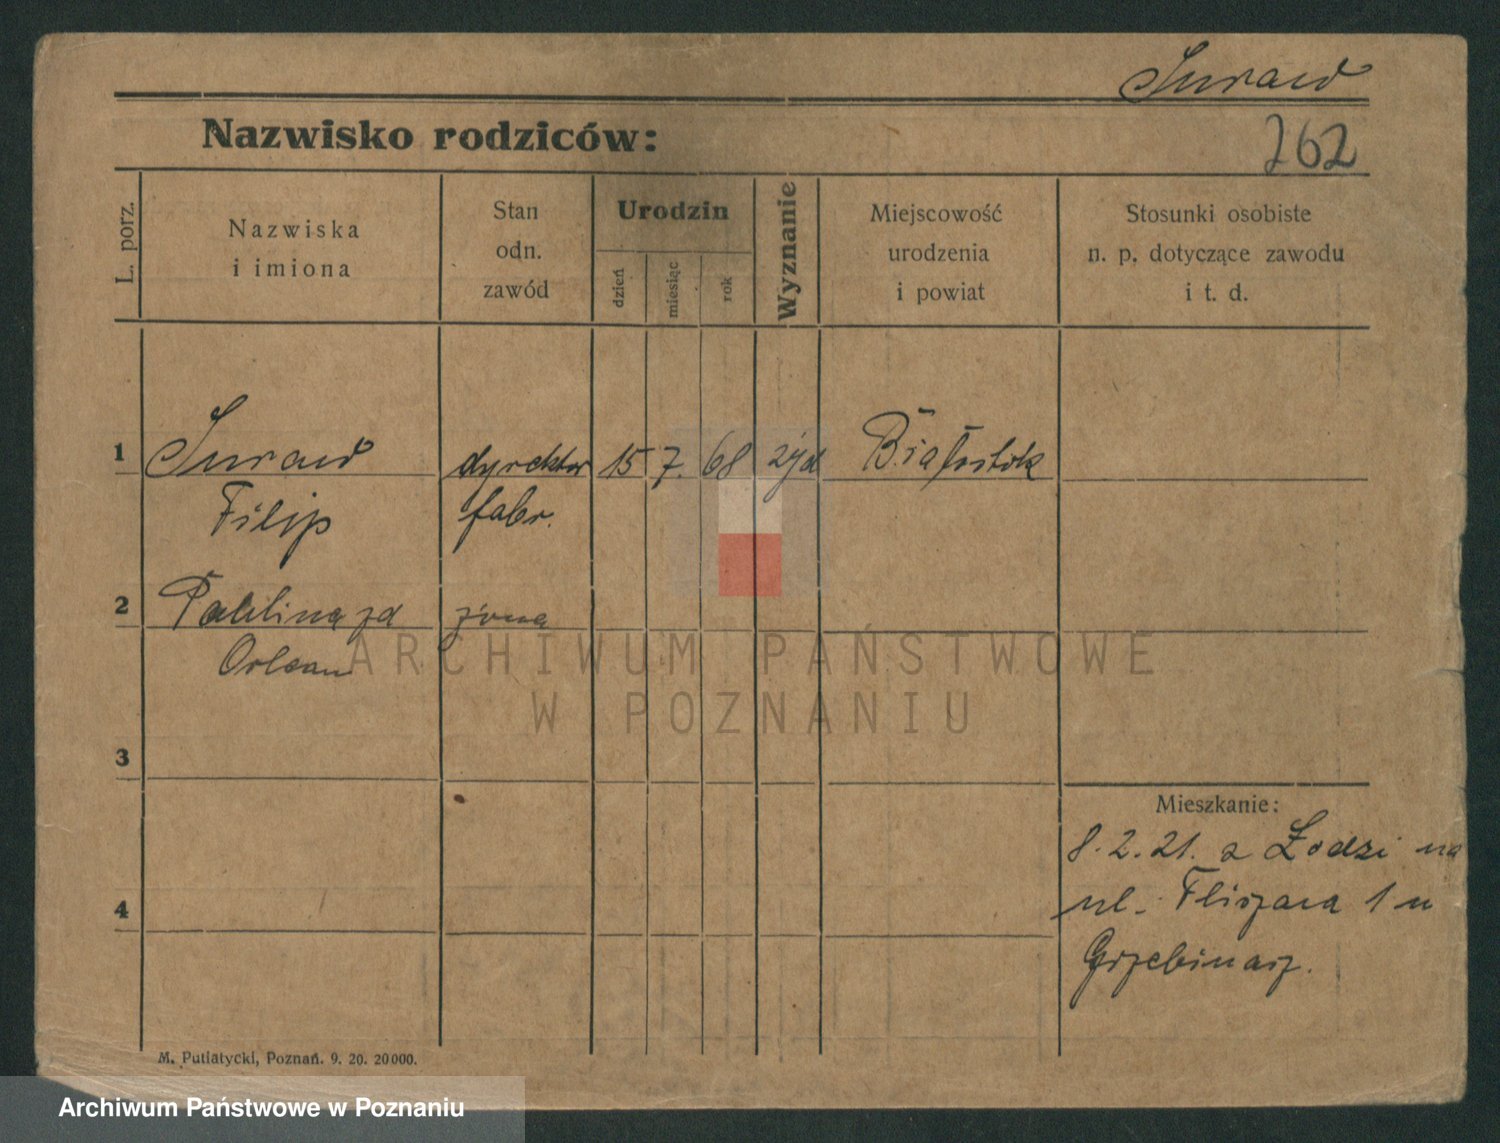 Suraw
Nazwisko rodziców:
262
L. porz.
Nazwiska
i imiona
Stan
odn.
zawód
Urodzin
dzień
miesiąc
rok
Wyznanie
Miejscowość
urodzenia
i powiat
Stosunki osobiste
n. p. dotyczące zawodu
i t. d.
1 Suraw dyrektor 15 7. 68 żyd Białostok
Filip fabr.
2 Paulina zd żona
Orlean
ARCHIWUM PAŃSTWOWE
W POZNANIU
3
Mieszkanie:
8.2.21. z Łodzi na
4
ul. 1 u
M. Putiatycki, Poznań. 9. 20. 20000.
Archiwum Państwowe w Poznaniu